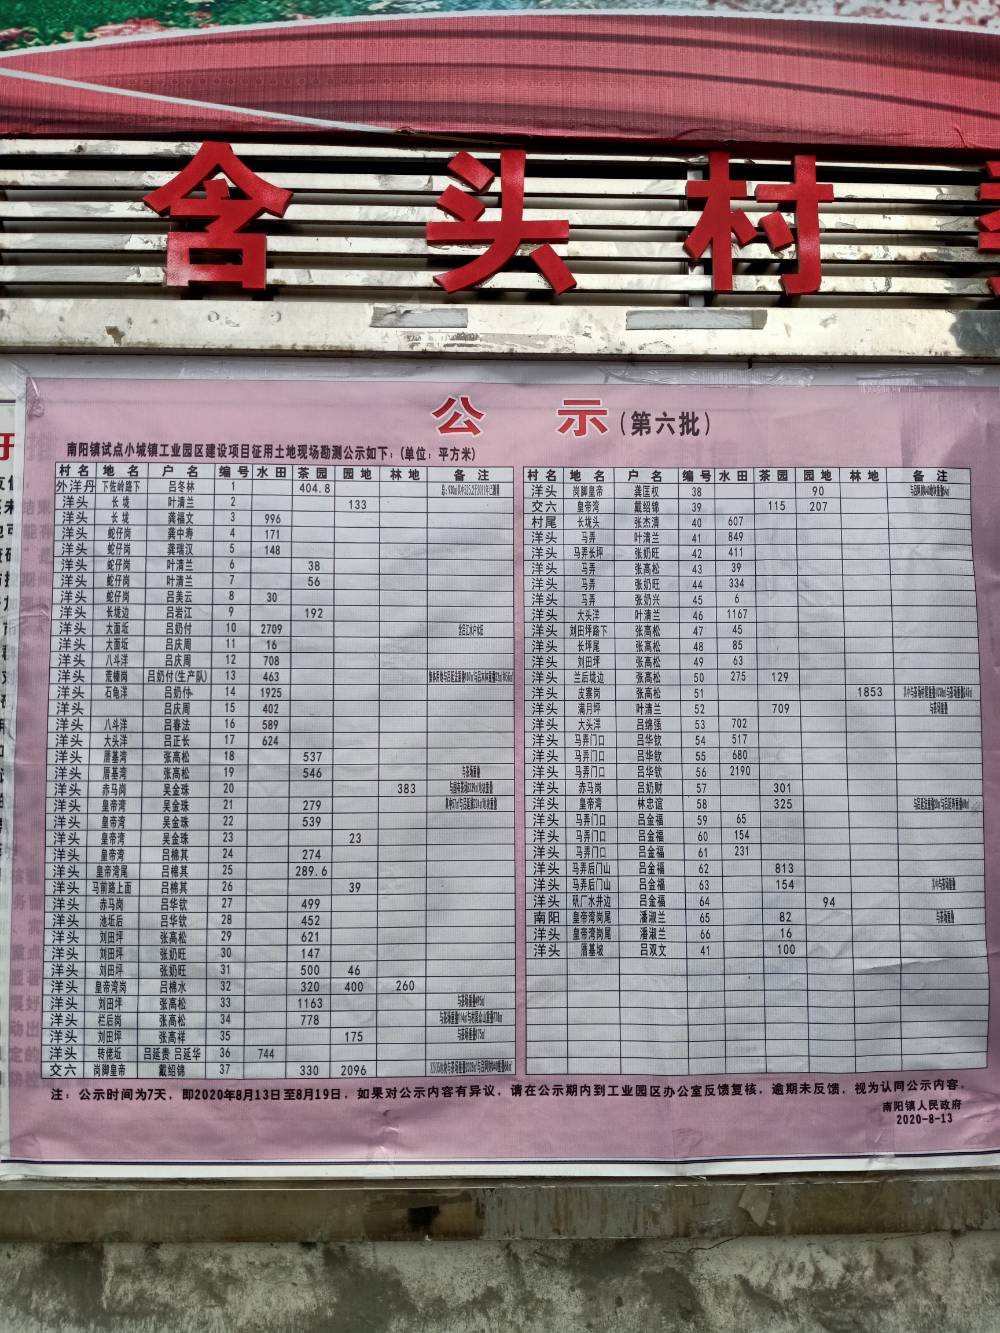 含头村
公 示(第六批)
南阳镇试点小城镇工业园区建设项目征用土地现场勘测公示如下：(单位：平方米)
村名 地名 户名 编号 水田 茶园 园地 林地 备注
外洋丹 下佐岭路下 吕冬林 1 404.8
洋头 长垅 叶清兰 2 133
洋头 长垅 龚福文 3 996
洋头 蛇仔岗 龚中寿 4 171
洋头 蛇仔岗 龚瑞汉 5 148
洋头 蛇仔岗 叶清兰 6 38
洋头 蛇仔岗 叶清兰 7 56
洋头 蛇仔岗 吕美云 8 30
洋头 长垅边 吕岩江 9 192
洋头 大面坵 吕奶付 10 2709
洋头 大面坵 吕庆周 11 16
洋头 八斗洋 吕庆周 12 708
洋头 荒榛岗 吕奶付(生产队) 13 463
洋头 石龟洋 吕奶仕 14 1925
洋头 吕庆周 15 402
洋头 八斗洋 吕春法 16 589
洋头 大头洋 吕正长 17 624
洋头 厝基湾 张高松 18 537
洋头 厝基湾 张高松 19 546 与茶场重叠
洋头 赤马岗 吴金珠 20 383
洋头 皇帝湾 吴金珠 21 279
洋头 皇帝湾 吴金珠 22 539
洋头 皇帝湾 吴金珠 23 23
洋头 皇帝湾 吕棉其 24 274
洋头 皇帝湾尾 吕棉其 25 289.6
洋头 马前路上面 吕棉其 26 39
洋头 赤马岗 吕华钦 27 499
洋头 池坵后 吕华钦 28 452
洋头 刘田坪 张高松 29 621
洋头 刘田坪 张奶旺 30 147
洋头 刘田坪 张奶旺 31 500 46
洋头 皇帝湾岗 吕棉水 32 320 400 260
洋头 刘田坪 张高松 33 1163
洋头 栏后岗 张高松 34 778
洋头 刘田坪 张高祥 35 175
洋头 转佬坵 吕延贵 吕延华 36 744
交六 岗脚皇帝 戴绍锦 37 330 2096
村名 地名 户名 编号 水田 茶园 园地 林地 备注
洋头 岗脚皇帝 龚匡权 38 90
交六 皇帝湾 戴绍锦 39 115 207
村尾 长垅头 张杰清 40 607
洋头 马弄 叶清兰 41 849
洋头 马弄长坪 张奶旺 42 411
洋头 马弄 张高松 43 39
洋头 马弄 张奶旺 44 334
洋头 马弄 张奶兴 45 6
洋头 大头洋 叶清兰 46 1167
洋头 刘田坪路下 张高松 47 45
洋头 长坪尾 张高松 48 85
洋头 刘田坪 张高松 49 63
洋头 兰后垅边 张高松 50 275 129
洋头 皮寨岗 张高松 51 1853
洋头 满月坪 叶清兰 52 709 与茶场重叠
洋头 大头洋 吕绵强 53 702
洋头 马弄门口 吕华钦 54 517
洋头 马弄门口 吕华钦 55 680
洋头 马弄门口 吕华钦 56 2190
洋头 赤马岗 吕奶财 57 301
洋头 皇帝湾 林忠谊 58 325
洋头 马弄门口 吕金福 59 65
洋头 马弄门口 吕金福 60 154
洋头 马弄门口 吕金福 61 231
洋头 马弄后门山 吕金福 62 813
洋头 马弄后门山 吕金福 63 154
洋头 矾厂水井边 吕金福 64 94
南阳 皇帝湾岗尾 潘淑兰 65 82 与茶场重叠
洋头 皇帝湾岗尾 潘淑兰 66 16
洋头 厝基坡 吕双文 41 100
注：公示时间为7天，即2020年8月13日至8月19日，如果对公示内容有异议，请在公示期内到工业园区办公室反馈复核，逾期未反馈，视为认同公示内容。
南阳镇人民政府
2020-8-13